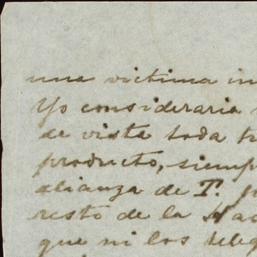 una victima in
Yo consideraria
de vista toda tr
producto, siemp
alianza de T.
resto de la Hac
que ni los deleg